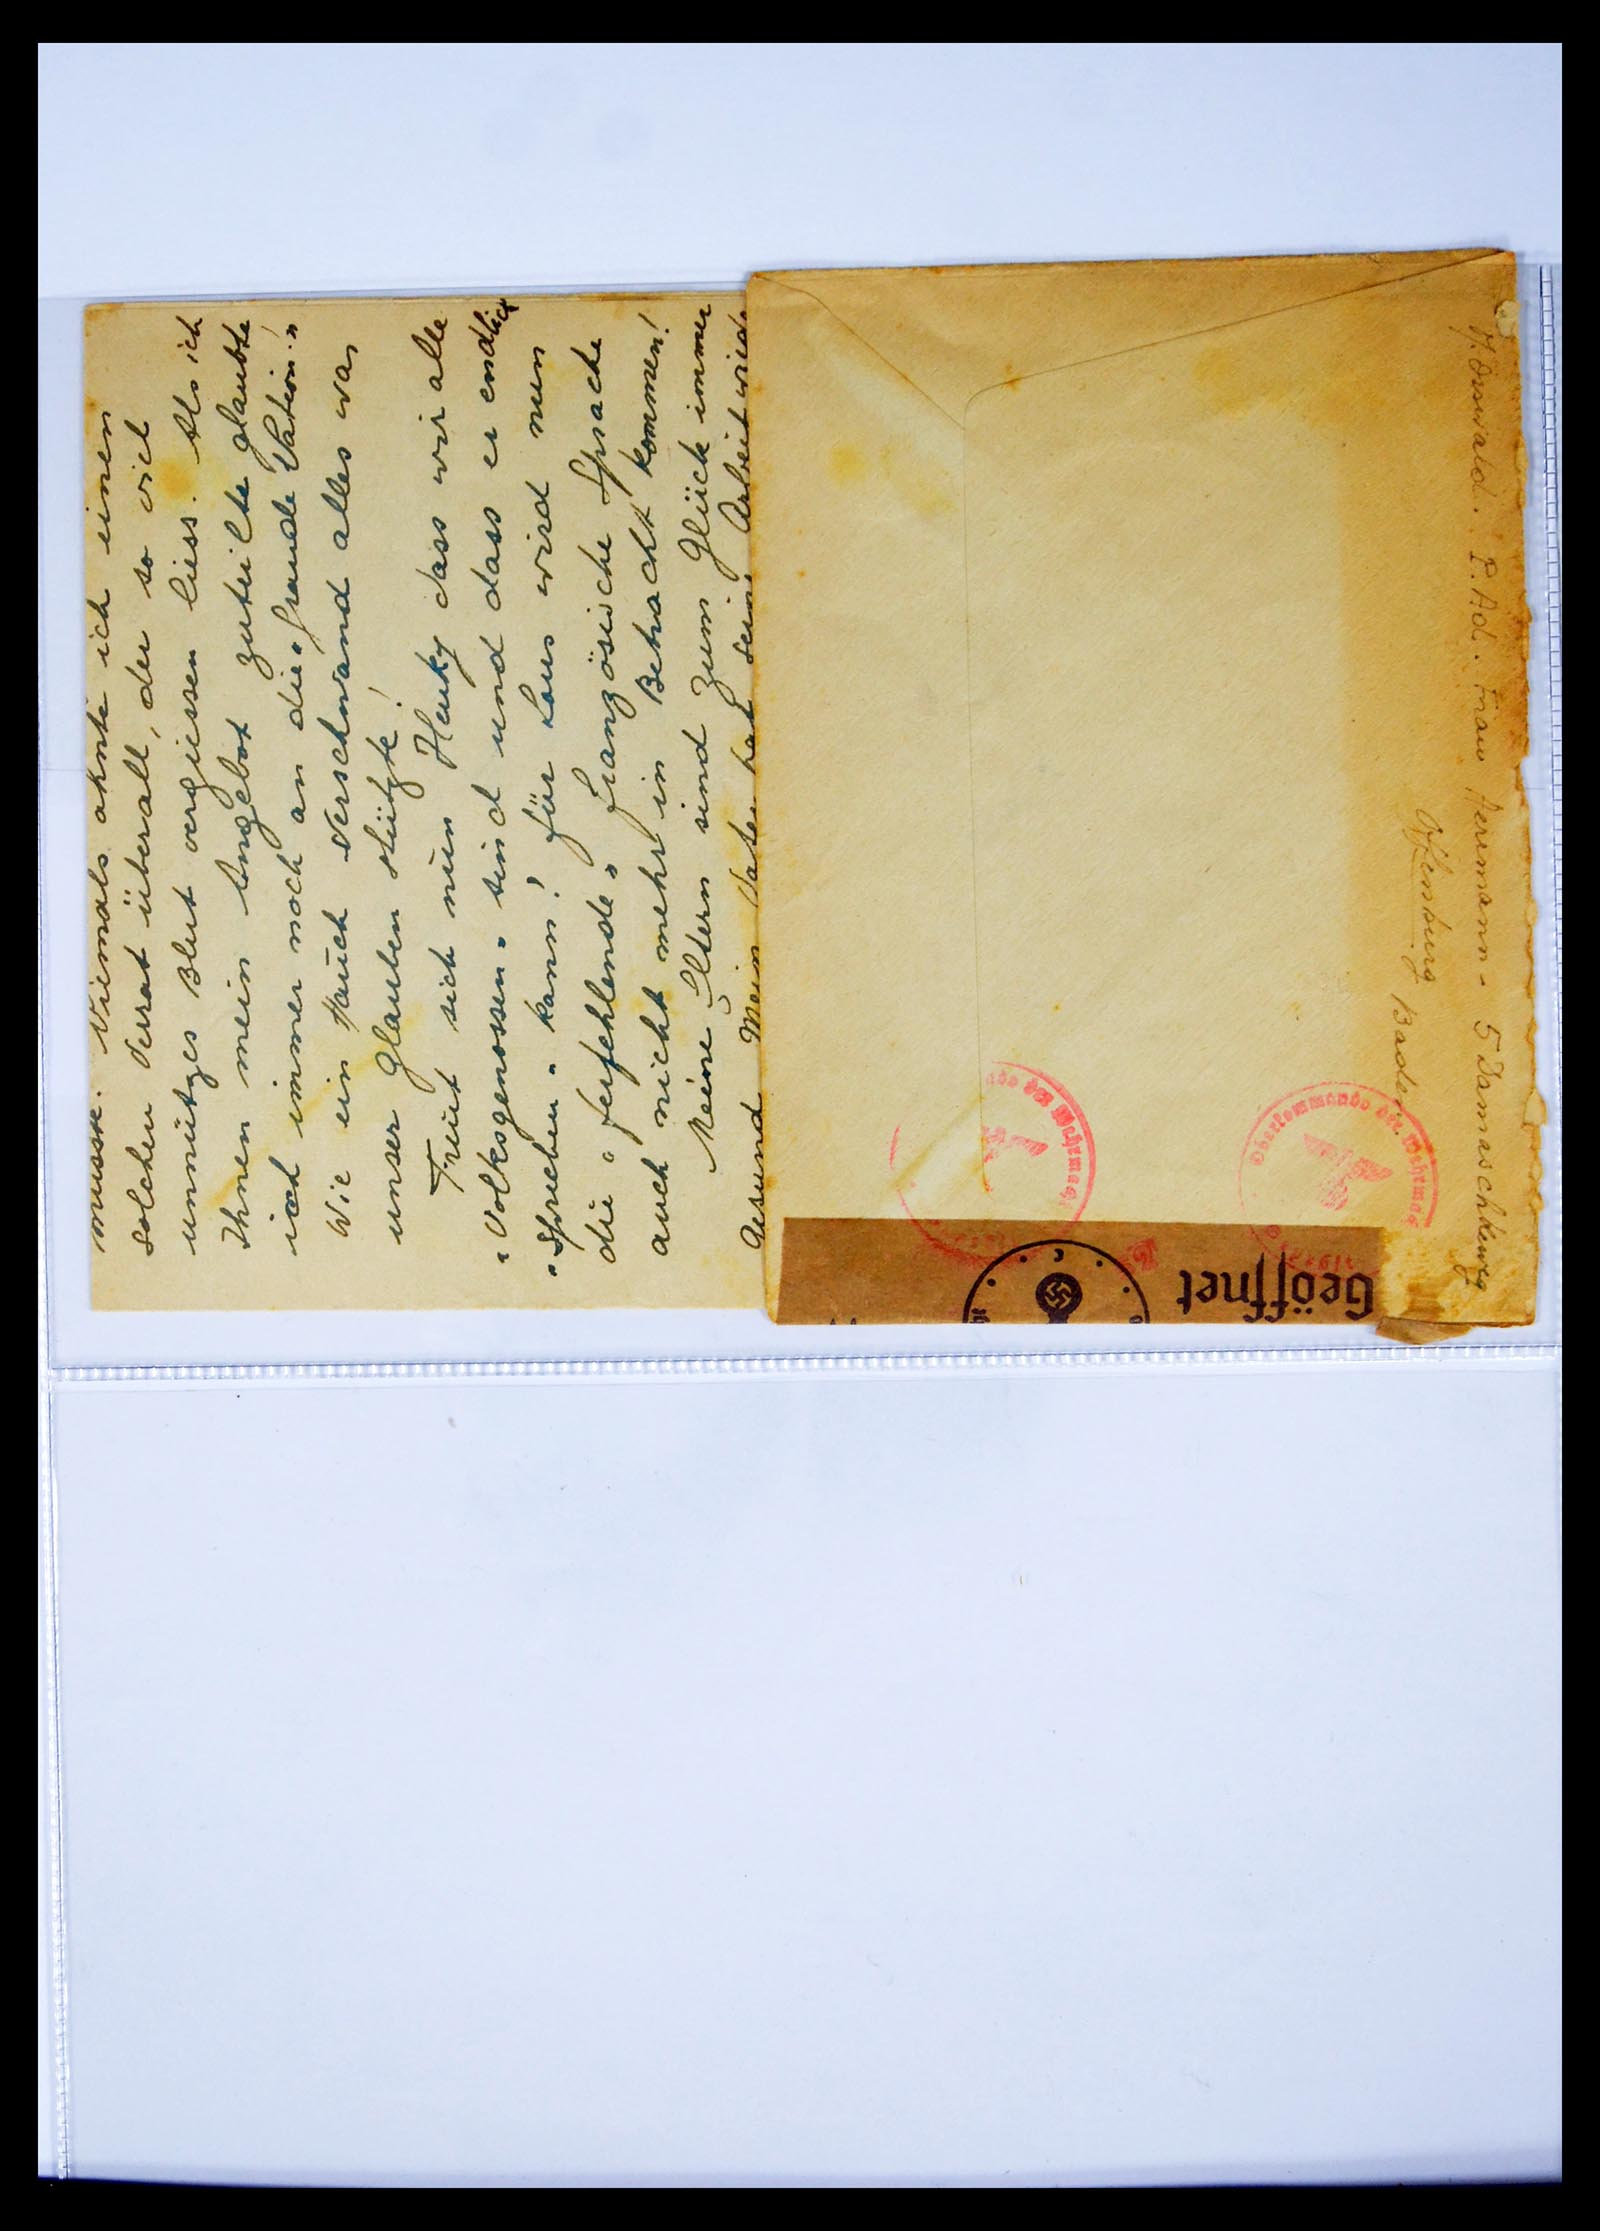 musste. Niemals ahnte ich einen
solchen Verrat überall, der so viel
unnützges Blut vergiessen liess. Als ich
Ihnen mein Angebot zuteilte glaubte
ich immer noch an die "Grande Nation"!
Wie ein Hauch verschwand alles wa
unser Glauben stützte!
Freut sich nun Heuky dass wir alle
"Volksgenossen" sind und dass er endlich
"Sprechen" kann! Für Lous wird nun
die "ferfehlende" französische Sprache
auch nicht mehr in Betracht kommen!
Meine Eltern sind zum Glück immer
Gesund. Mein Vater hat seine Arbeit wied
H. Osswald. P. Ad. Frau Herrmann - 5 Damaschkeweg
Offenburg Baden.
Oberkommando der Wehrmac
Wehrmac
Geöffnet